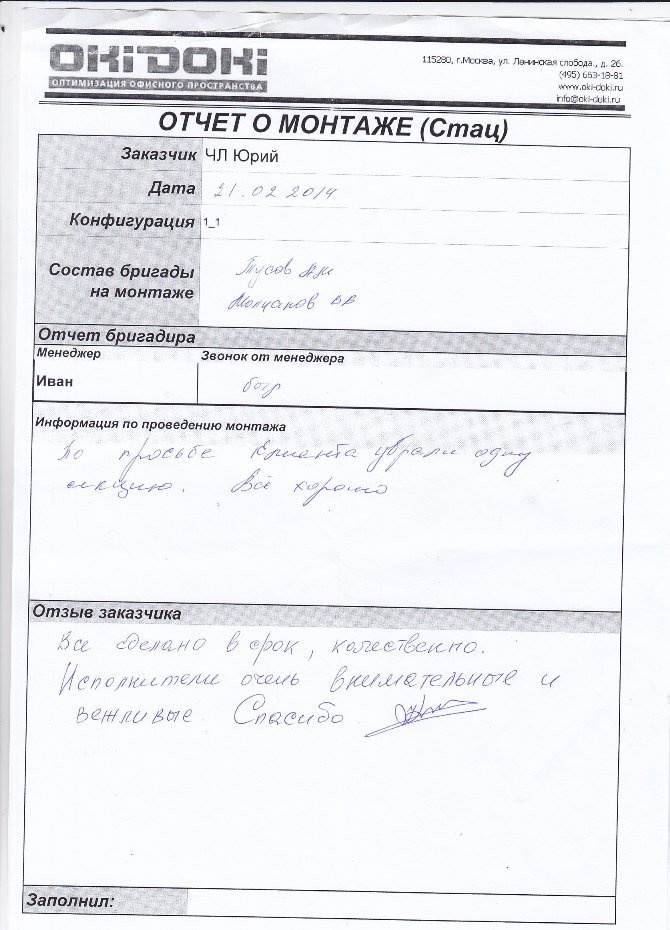 OKIDOKI
ОПТИМИЗАЦИЯ ОФИСНОГО ПРОСТРАНСТВА
115280, г.Москва, ул. Ленинская слобода., д. 26.
(495) 663-18-81
www.oki-doki.ru
info@oki-doki.ru
ОТЧЕТ О МОНТАЖЕ (Стац)
Заказчик ЧЛ Юрий
Дата 21.02 2014
Конфигурация 1_1
Состав бригады
на монтаже
Отчет бригадира
Менеджер Звонок от менеджера
Иван
Информация по проведению монтажа
По просьбе клиента убрали одну
секцию. Всё хорошо
Отзыв заказчика
Все сделано в срок, качественно.
Исполнители очень внимательные и
вежливые Спасибо
Заполнил: